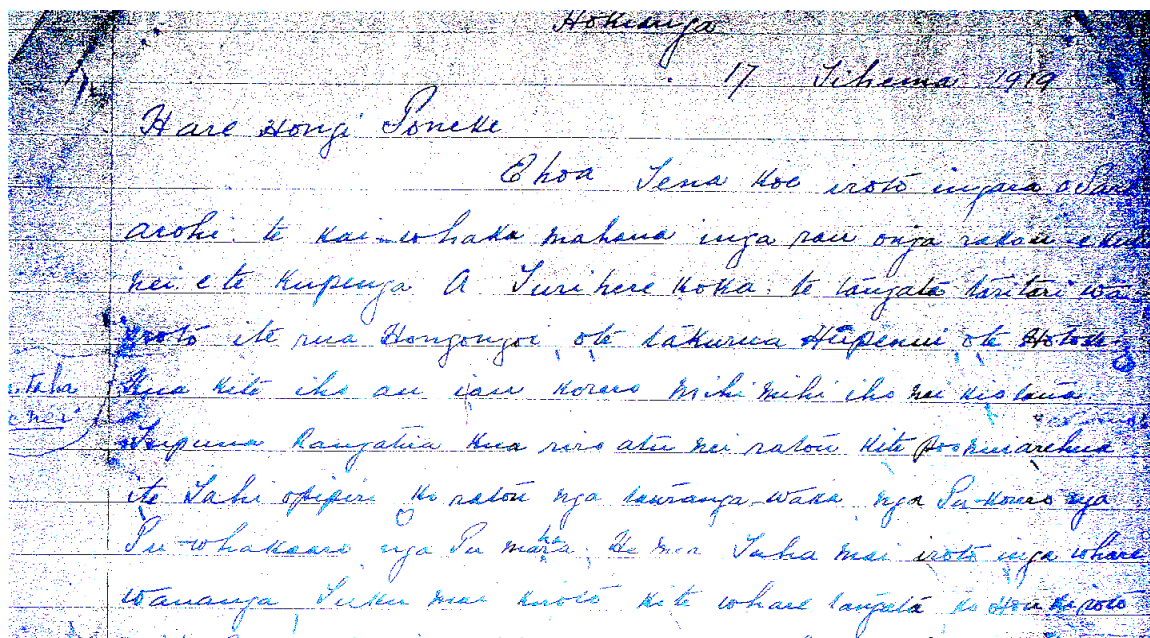 Hokianga
17 Tihema 1919
Hare Hongi Poneke
Ehoa Tena koe iroto ingara o Para
arohi. te kai-whaka mahana inga rau onga rakau e kua
nei. e te Kupenga A Turihere Koka. te tangata taritari wā
kroto ite rua Hongongoi, ote takurua Hüpenui ote Hotoke
Kua kite iho au iau korero mihi mihi iho nei kio taua
Tupuna Rangatiia kua riro atu nei ratou kite poo
ite Tahi opipiri Ko ratou nga tauranga-waka nga Pu-korero nga
Pu-whakaaro nga Pu mahara. He mea Tuha mai iroto inga whare
wananga Tuku mai kiroto kite whare tangata
i. taha
e nei